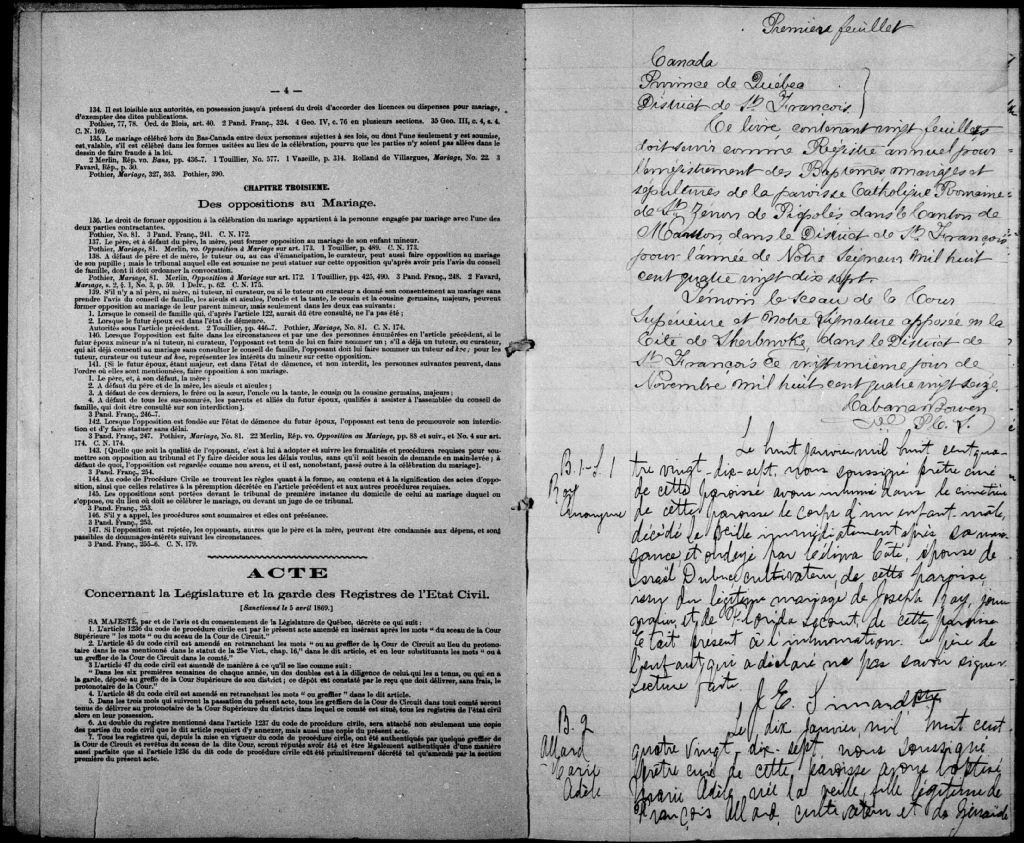 — 4 —
134. Il est loisible aux autorités, en possession jusqu'à présent du droit d'accorder des licences ou dispenses pour mariage,
d'exempter des dites publications.
Pothier, 77, 78. Ord. de Blois, art. 40. 2 Pand. Franç., 324. 4 Geo. IV, c. 76 en plusieurs sections. 35 Geo. III, c. 4, s. 4.
C. N. 169.
135. Le mariage célébré hors du Bas-Canada entre deux personnes sujettes à ses lois, ou dont l'une seulement y est soumise,
est valable, s'il est célébré dans les formes usitées au lieu de la célébration, pourvu que les parties n'y soient pas allées dans le
dessin de faire fraude à la loi.
2 Merlin, Rép. vo. Bans, pp. 436-7. 1 Touillier, No. 577. 1 Vazeille, p. 314. Rolland de Villargues, Mariage, No. 22. 3
Favard, Rép., p. 30.
Pothier, Mariage, 327, 363. Pothier, 390.
CHAPITRE TROISIEME.
Des oppositions au Mariage.
136. Le droit de former opposition à la célébration du mariage appartient à la personne engagée par mariage avec l'une des
deux parties contractantes.
Pothier, No. 81. 3 Pand. Franç., 241. C. N. 172.
137. Le père, et à défaut du père, la mère, peut former opposition au mariage de son enfant mineur.
Pothier, Mariage, 81. Merlin, vo. Opposition à Mariage sur art. 173. 1 Touillier, p. 489. C. N. 173.
138. A défaut de père et de mère, le tuteur ou, au cas d'émancipation, le curateur, peut aussi faire opposition au mariage
de son pupille; mais le tribunal auquel elle est soumise ne peut statuer sur cette opposition qu'après avoir pris l'avis du conseil
de famille, dont il doit ordonner la convocation.
Pothier, Mariage, 81. Merlin, Opposition à Mariage sur art. 172. 1 Touillier, pp. 425, 490. 3 Pand. Franç., 248. 2 Favard,
Mariage, s. 2, § 1, No. 3, p. 59. 1 Delv., p. 62. C. N. 175.
139. S'il n'y a ni père, ni mère, ni tuteur, ni curateur, ou si le tuteur ou curateur a donné son consentement au mariage sans
prendre l'avis du conseil de famille, les aïeuls et aïeules, l'oncle et la tante, le cousin et la cousine germains, majeurs, peuvent
former opposition au mariage de leur parent mineur, mais seulement dans les deux cas suivants:
1. Lorsque le conseil de famille qui, d'après l'article 122, aurait dû être consulté, ne l'a pas été;
2. Lorsque le futur époux est dans l'état de démence.
Autorités sous l'article précédent. 2 Touillier, pp. 446-7. Pothier, Mariage, No. 81. C. N. 174.
140. Lorsque l'opposition est faite dans les circonstances et par une des personnes énumérées en l'article précédent, si le
futur époux mineur n'a ni tuteur, ni curateur, l'opposant est tenu de lui en faire nommer un; s'il a déjà un tuteur, ou curateur,
qui ait déjà consenti au mariage sans consulter le conseil de famille, l'opposant doit lui faire nommer un tuteur ad hoc; pour les
tuteur, curateur ou tuteur ad hoc, représenter les intérêts du mineur sur cette opposition.
141. [Si le futur époux, étant majeur, est dans l'état de démence, et non interdit, les personnes suivantes peuvent, dans
l'ordre où elles sont mentionnées, faire opposition à son mariage.
1. Le père, et, à son défaut, la mère;
2. A défaut du père et de la mère, les aïeuls et aïeules;
3. A défaut de ces derniers, le frère ou la sœur, l'oncle ou la tante, le cousin ou la cousine germains, majeurs;
4. A défaut de tous les sus-nommés, les parents et alliés du futur époux, qualifiés à assister à l'assemblée du conseil de
famille, qui doit être consulté sur son interdiction].
3 Pand. Franç., 246-7.
142. Lorsque l'opposition est fondée sur l'état de démence du futur époux, l'opposant est tenu de promouvoir son interdic-
tion et d'y faire statuer sans délai.
3 Pand. Franç., 247. Pothier, Mariage, No. 81. 22 Merlin, Rép. vo. Opposition au Mariage, pp. 88 et suiv., et No. 4 sur art.
174. C. N. 174.
143. [Quelle que soit la qualité de l'opposant, c'est à lui à adopter et suivre les formalités et procédures requises pour sou-
mettre son opposition au tribunal et l'y faire décider sous les délais voulus, sans qu'il soit besoin de demande en main-levée; à
défaut de quoi, l'opposition est regardée comme non avenu, et il est, nonobstant, passé outre à la célébration du mariage].
3 Pand. Franç., 254.
144. Au code de Procédure Civile se trouvent les règles quant à la forme, au contenu et à la signification des actes d'oppo-
sition, ainsi que celles relatives à la péremption décrétée en l'article précédent et aux autres procédures requises.
145. Les oppositions sont portées devant le tribunal de première instance du domicile de celui au mariage duquel on
s'oppose, ou du lieu où doit se célébrer le mariage, ou devant un juge de ce tribunal.
3 Pand. Franç., 253.
146. S'il y a appel, les procédures sont sommaires et elles ont préséance.
3 Pand. Franç., 253.
147. Si l'opposition est rejetée, les opposants, autres que le père et la mère, peuvent être condamnés aux dépens, et sont
passibles de dommages-intérêts suivant les circonstances.
3 Pand. Franç., 255-6. C. N. 179.
ACTE
Concernant la Législature et la garde des Registres de l'Etat Civil.
[Sanctionné le 5 avril 1869.]
SA MAJESTÉ, par et de l'avis et du consentement de la Législature de Québec, décrète ce qui suit:
1. L'article 1236 du code de procédure civile est par le présent acte amendé en insérant après les mots " du sceau de la Cour
Supérieure " les mots " ou du sceau de la Cour de Circuit."
2. L'article 45 du code civil est amendé en retranchant les mots " ou au greffier de la Cour de Circuit au lieu du protono-
taire dans le cas mentionné dans le statut de la 25e Vict., chap. 16," dans le dit article, et en leur substituants les mots " ou à
un greffier de la Cour de Circuit dans le comté."
3 L'article 47 du code civil est amendé de manière à ce qu'il se lise comme suit:
" Dans les six premières semaines de chaque année, un des doubles est à la diligence de celui qui les a tenus, ou qui en a
la garde, déposé au greffe de la Cour Supérieure de son district; ce dépôt est constaté par le reçu que doit délivrer, sans frais, le
protonotaire de la Cour."
4. L'article 48 du code civil est amendé en retranchant les mots " ou greffier " dans le dit article.
5. Dans les trois mois qui suivront la passation du présent acte, tous les greffiers de la Cour de Circuit dans tout comté seront
tenus de délivrer au protonotaire de la Cour Supérieure du district dans lequel tel comté est situé, tous les registres de l'état civil
alors en leur possession.
6. Au double du registre mentionné dans l'article 1237 du code de procédure civile, sera attaché non seulement une copie
des parties du code civil que le dit article requert d'y annexer, mais aussi une copie du présent acte.
7. Tous les registres qui, depuis la mise en vigueur du code de procédure civile, ont été authentiqués par quelque greffier de
la Cour de Circuit et revêtus du sceau de la dite Cour, seront réputés avoir été et être légalement authentiqués d'une manière
aussi parfaite que si l'article 1236 du dit code de procédure civile eût été primitivement décrété tel qu'amendé par la section
première du présent acte.
Premiere feuillet
Canada
Province de Québec
District de St. François
Ce livre, contenant vingt feuillets
doit servir comme Régistre annuel pour
l'enrégistrement des Baptemes mariages et
sépultures de la paroisse Catholique Romaine
de St. Zénon de Piopolis dans le Canton de
Marston dans le District de St. François
pour l'année de Notre Seigneur mil huit
cent quatre vingt dix sept.
Témoin le sceau de la Cour
Supérieure et notre signature apposée en la
Cité de Sherbrooke, dans le District de
St. François ce vingt unieme jour de
Novembre mil huit cent quatre vingt seize
Cabana & Bowen
P. C. S.
B. 1 - S. 1
Ray
Anonyme
Le huit janvier mil huit cent qua-
tre vingt-dix-sept, nous soussigné prêtre curé
de cette paroisse avons inhumé dans le cimetière
de cette paroisse le corps d'un enfant mâle,
décédé la veille immédiatement après sa nais-
sance, et ondoyé par Célina Côté, épouse de
Israël Dubuc cultivateur, de cette paroisse,
du légitime mariage de Joseph Ray, jour-
nalier, et de Florida de cette paroisse
Etait présent à l'inhumation le père de
l'enfant, qui a déclaré ne pas savoir signer.
Lecture faite.
J. E. Simard ptre
B. 2
Allard
Marie
Adèle
Le dix janvier mil huit cent
quatre vingt-dix-sept, nous soussigné
prêtre curé de cette paroisse avons baptisé
Marie Adèle née la veille, fille légitime de
François Allard, cultivateur et de Zénaïde